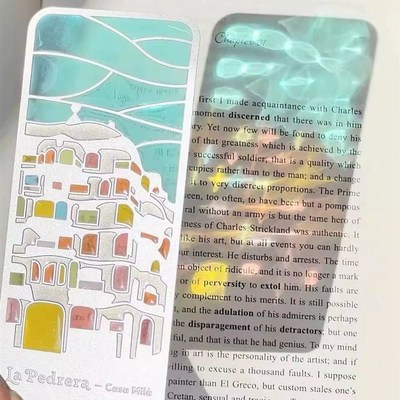 La Pedrera – Casa Milà
Chapter 1
first I made acquaintance with Charles
moment discerned that there was in him
ry. Yet now few will be found to deny his
of that greatness which is achieved by the
successful soldier, that is a quality which
upies rather than to the man; and a change
it to very discreet proportions. The Prime
een, too often, to have been but a pompous
ral without an army is but the tame hero of
ness of Charles Strickland was authentic. It
like his art, but at all events you can hardly
our interest. He disturbs and arrests. The time
m object of ridicule, and it is no longer a mark
or of perversity to extol him. His faults are
y complement to his merits. It is still possible
t, and the adulation of his admirers is perhaps
the disparagement of his detractors; but one
ful, and that is that he had genius. To my mind
g in art is the personality of the artist; and if
rilling to excuse a thousand faults. I suppose
painter than El Greco, but custom stales one's
Cretan, sensual and